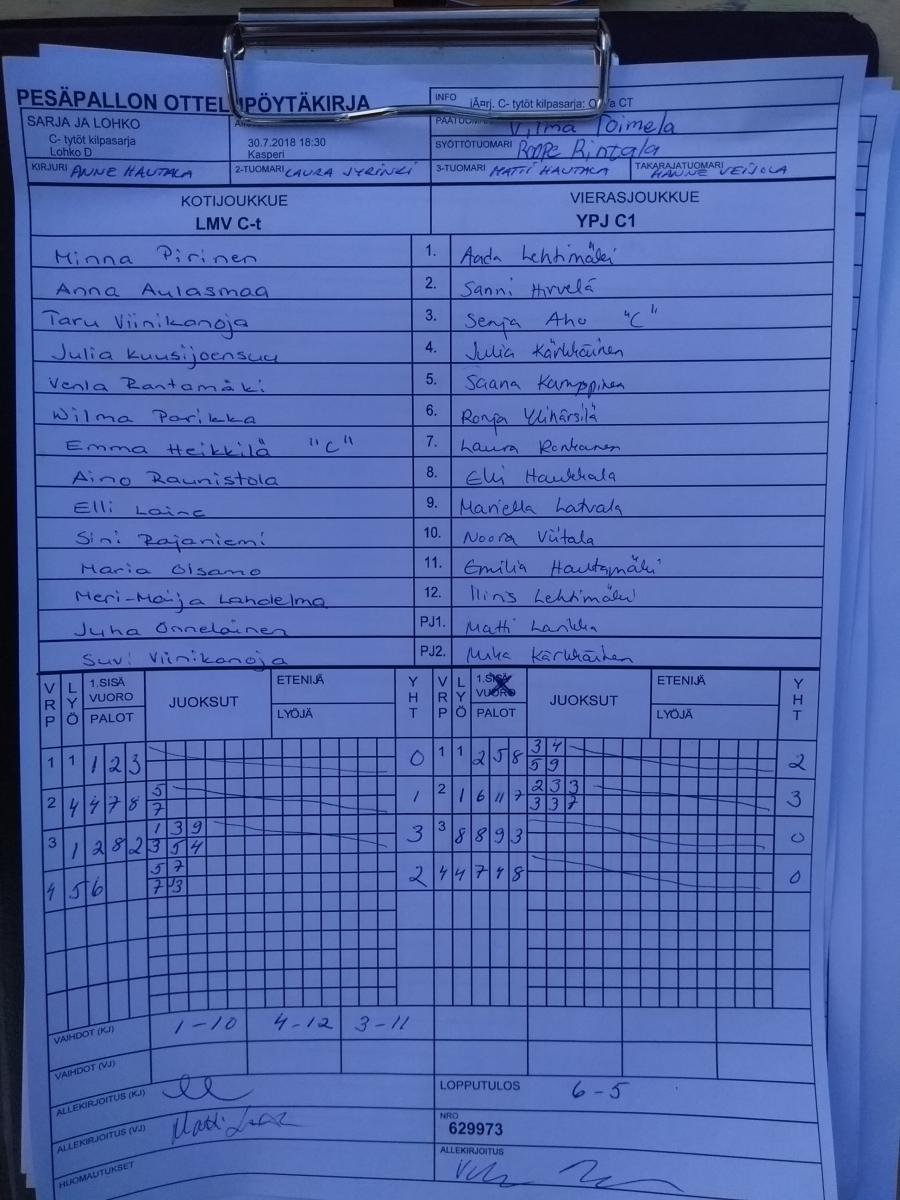 PESÄPALLON OTTELUPÖYTÄKIRJA
INFO
C- tytöt kilpasarja:
SARJA JA LOHKO
C- tytöt kilpasarja
Lohko D
30.7.2018 18:30
Kasperi
Vilma Toimela
SYÖTTÖTUOMARI Roope Rintala
KIRJURI ANNE HAUTALA
2-TUOMARI LAURA JYRINKI
3-TUOMARI MATTI HAUTALA
TAKARAJATUOMARI HANNE VEIJOLA
KOTIJOUKKUE
LMV C-t
VIERASJOUKKUE
YPJ C1
Minna Pirinen 1. Aada Lehtimäki
Anna Aulasmaa 2. Sanni Hirvelä
Taru Viinikanoja 3. Senja Aho "C"
Julia Kuusijoensuu 4. Julia Kärkkäinen
Venla Rantamäki 5. Saana Kamppinen
Wilma Parikka 6. Ronja Ylihärsilä
Emma Heikkilä "C" 7. Laura Ronkanen
Aino Raunistola 8. Elli Haukkala
Elli Laine 9. Mariella Latvala
Sini Rajaniemi 10. Noora Viitala
Maria Oisamo 11. Emilia Hautamäki
Meri-Maija Lahdelma 12. Iiris Lehtimäki
Juha Onnelainen PJ1. Matti Lankka
Suvi Viinikanoja PJ2. Mika Kärkkäinen
VRP LYÖ 1.SISÄ VUORO PALOT JUOKSUT ETENIJÄ LYÖJÄ YHT VRP LYÖ 1.SISÄ VUORO PALOT JUOKSUT ETENIJÄ LYÖJÄ YHT
3 4
1 1 1 2 3 0 1 1 2 5 8 5 9 2
5 2 3 3
2 4 4 7 8 7 1 2 1 6 11 7 3 3 7 3
1 3 9
3 1 2 8 2 3 5 4 3 3 8 8 9 3 0
5 7
4 5 6 7 3 2 4 4 7 4 8 0
VAIHDOT (KJ) 1-10 4-12 3-11
VAIHDOT (VJ)
ALLEKIRJOITUS (KJ)
LOPPUTULOS 6-5
ALLEKIRJOITUS (VJ)
NRO
629973
HUOMAUTUKSET
ALLEKIRJOITUS